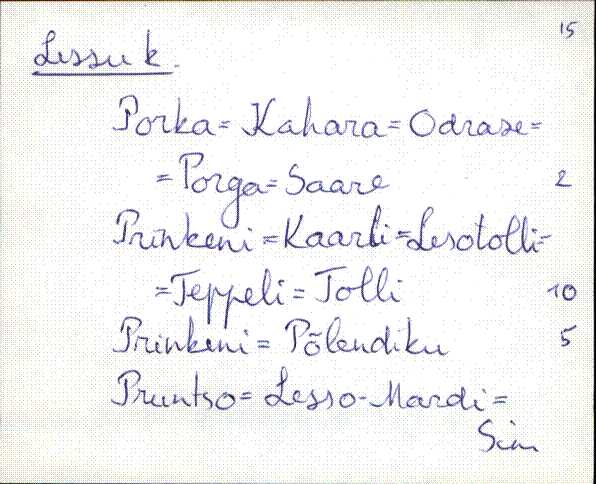 15
Lessu k.
Porka = Kahara = Odrase =
= Porga = Saare 2
Prinkeni = Kaarli = Lesotolli =
= Teppeli = Tolli 10
Prinkeni = Põlendiku 5
Pruntso = Lesso-Mardi =
Sim